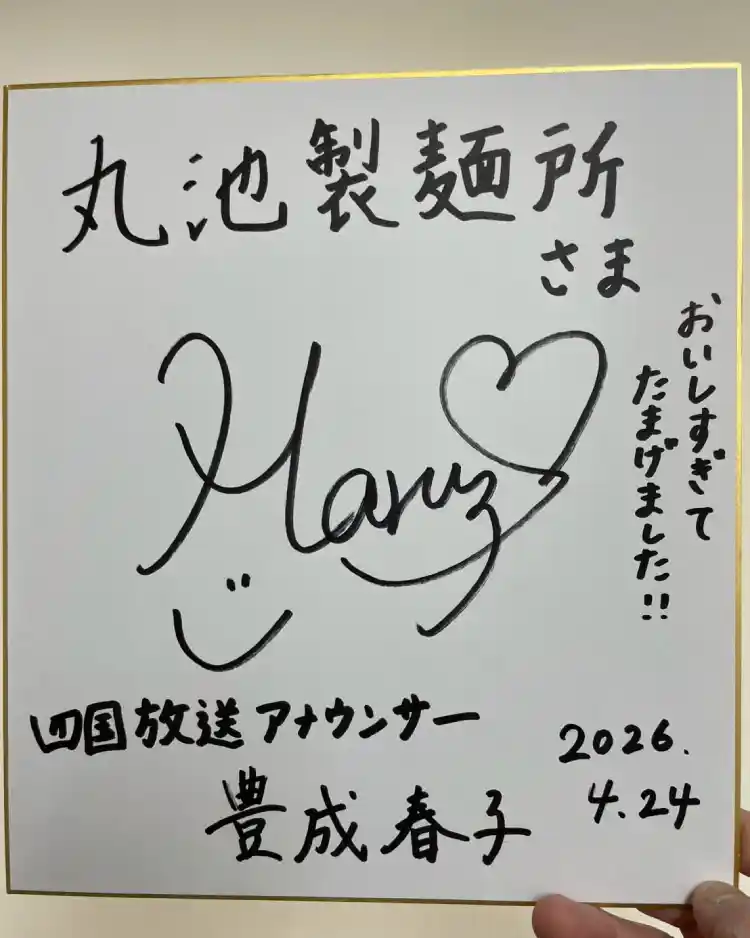 丸池製麺所
さま
おいしすぎて
たまげました!!
四国放送アナウンサー
豊成春子
2026.
4.24